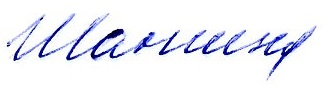 Шанина